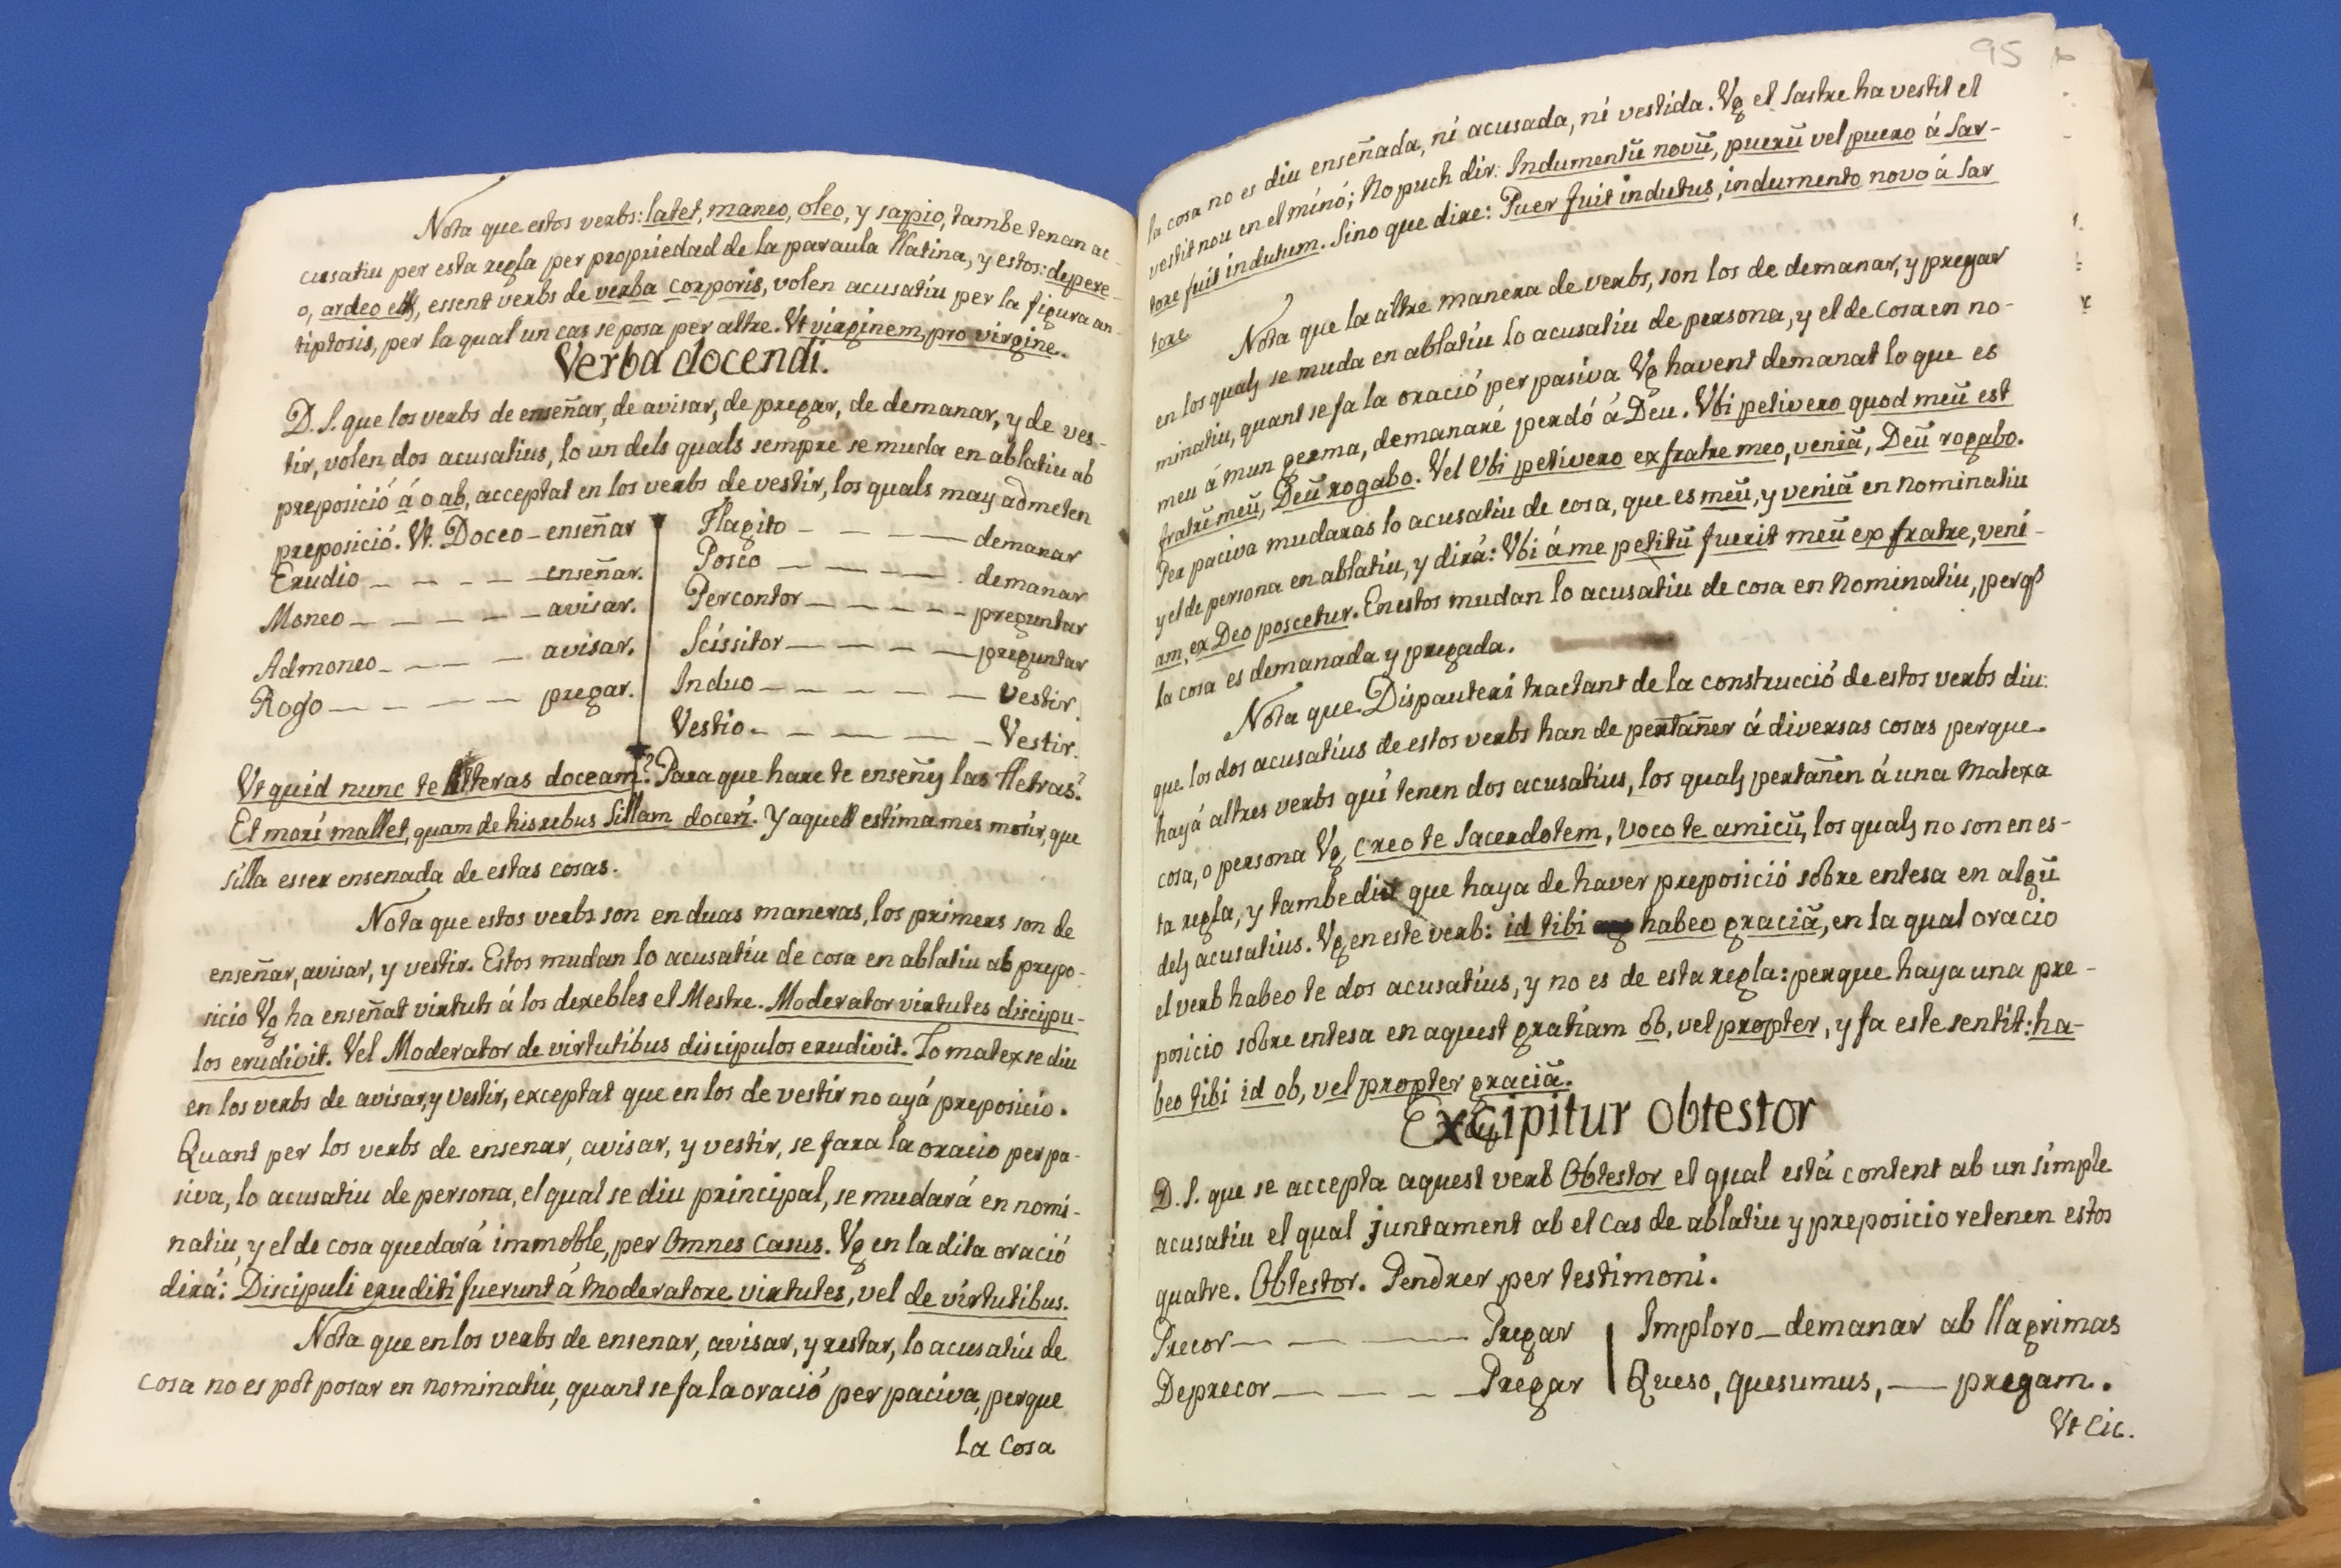 Nota que estos verbs: latet, maneo, oleo, y sapio, tambe tenan ac-
cusatiu per esta regla per propriedad de la paraula llatina, y estos: depere-
o, ardeo essent verbs de verba corporis, volen acusatiu per la figura an-
tiptosis, per la qual un cas se posa per altre. Vt virginem, pro virgine.
Verba docendi.
D. S. que los verbs de enseñar, de avisar, de pregar, de demanar, y de ves-
tir, volen dos acusatius, lo un dels quals sempre se muda en ablatiu ab
preposició á o ab, acceptat en los verbs de vestir, los quals may admeten
preposició. Vt. Doceo - enseñar
Erudio - - - - - enseñar.
Moneo - - - - - avisar.
Admoneo - - - - avisar.
Rogo - - - - - pregar.
Flagito - - - - - demanar
Posco - - - - - demanar
Percontor - - - - - preguntar
Scissitor - - - - - preguntar
Induo - - - - - Vestir.
Vestio - - - - - Vestir.
Vt quid nunc te litteras doceam? Para que hare te enseñy las lletras?
Et mori mallet, quam de his rebus Sillam doceri. Y aquell estima mes morir, que
silla esser ensenada de estas cosas.
Nota que estos verbs son en duas maneras, los primers son de
enseñar, avisar, y vestir. Estos mudan lo acusatiu de cosa en ablatiu ab prepo-
sicio Vg ha enseñat virtuts á los dexebles el Mestre. Moderator virtutes discipu-
los erudivit. Vel Moderator de virtutibus discipulos erudivit. Lo matex se diu
en los verbs de avisar, y vestir, exceptat que en los de vestir no ayá preposicio.
Quant per los verbs de ensenar, avisar, y vestir, se fara la oracio per pa-
siva, lo acusatiu de persona, el qual se diu principal, se mudará en nomi-
natiu, y el de cosa quedará immoble, per Omnes Casus. Vg en la dita oració
dirá: Discipuli eruditi fuerunt á Moderatore virtutes, vel de virtutibus.
Nota que en los verbs de ensenar, avisar, y restar, lo acusatiu de
cosa no es pot posar en nominatiu, quant se fa la oració per paciva, perque
la cosa
95
la cosa no es diu enseñada, ni acusada, ni vestida. Vg el Sastre ha vestit el
vestit nou en el minó; No puch dir: Indumentũ novũ, puerũ vel puero á Sar-
tore fuit indutum. Sino que dire: Puer fuit indutus, indumento novo á Sar
tore
Nota que la altre manera de verbs, son los de demanar, y pregar
en los quals se muda en ablatiu lo acusatiu de persona, y el de cosa en no-
minatiu, quant se fa la oració per pasiva Vg havent demanat lo que es
meu á mun germa, demanaré perdó á Deu. Vbi petivero quod meũ est
fratrẽ meũ, Deũ rogabo. Vel Vbi petivero ex fratre meo, veniã, Deũ rogabo.
Per paciva mudaras lo acusatiu de cosa, que es meũ, y veniã en nominatiu
y el de persona en ablatiu, y dirá: Vbi á me petitũ fuerit meũ ex fratre, veni-
am, ex Deo poscetur. En estos mudan lo acusatiu de cosa en Nominatiu, perq̃
la cosa es demanada y pregada.
Nota que Dispauteri tractant de la construcció de estos verbs diu:
que los dos acusatius de estos verbs han de pertañer á diversas cosas perque
hayá altres verbs qui tenen dos acusatius, los quals pertañen á una Matexa
cosa, o persona Vg creo te Sacerdotem, voco te amicũ, los quals no son en es-
ta regla, y tambe diu que haya de haver preposició sobre entesa en algũ
dels acusatius. Vg en este verb: id tibi habeo graciã, en la qual oracio
el verb habeo te dos acusatius, y no es de esta regla: perque haya una pre-
posicio sobre entesa en aquest gratiam ob, vel propter, y fa este sentit: ha-
beo tibi id ob, vel propter graciã.
Excipitur obtestor
D. S. que se accepta aquest verb Obtestor el qual está content ab un simple
acusatiu el qual juntament ab el cas de ablatiu y preposicio retenen estos
quatre. Obtestor. Pendrer per testimoni.
Precor - - - - Pregar
Deprecor - - - - Pregar
Imploro - demanar ab llagrimas
Queso, quesumus, - pregam.
Vt Cic.